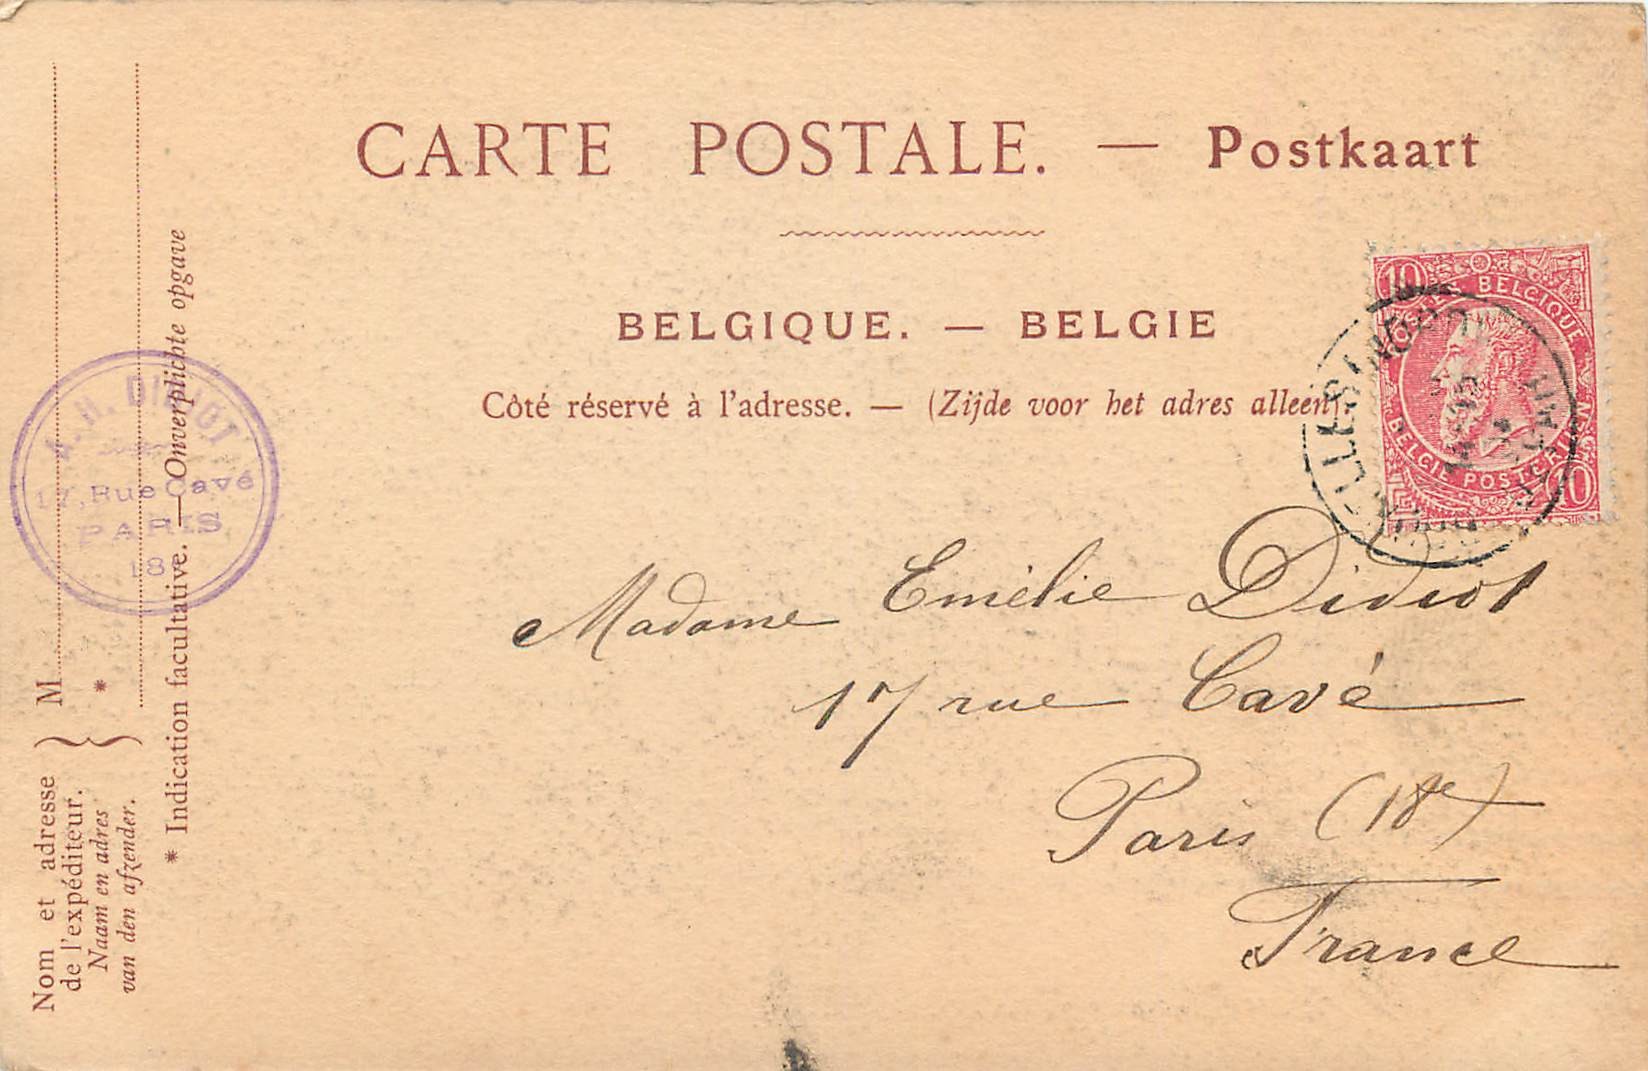 CARTE POSTALE. — Postkaart
BELGIQUE. — BELGIE
Côté réservé à l'adresse. — (Zijde voor het adres alleen).
10 10
POSTES BELGIQUE
BELGIE POSTERIJEN
17, Rue Cavé
PARIS
18
Madame Emélie Didiot
17 rue Cavé
Paris (18e)
France
Nom et adresse
de l'expéditeur.
Naam en adres
van den afzender.
M
*
* Indication facultative. — Onverplichte opgave